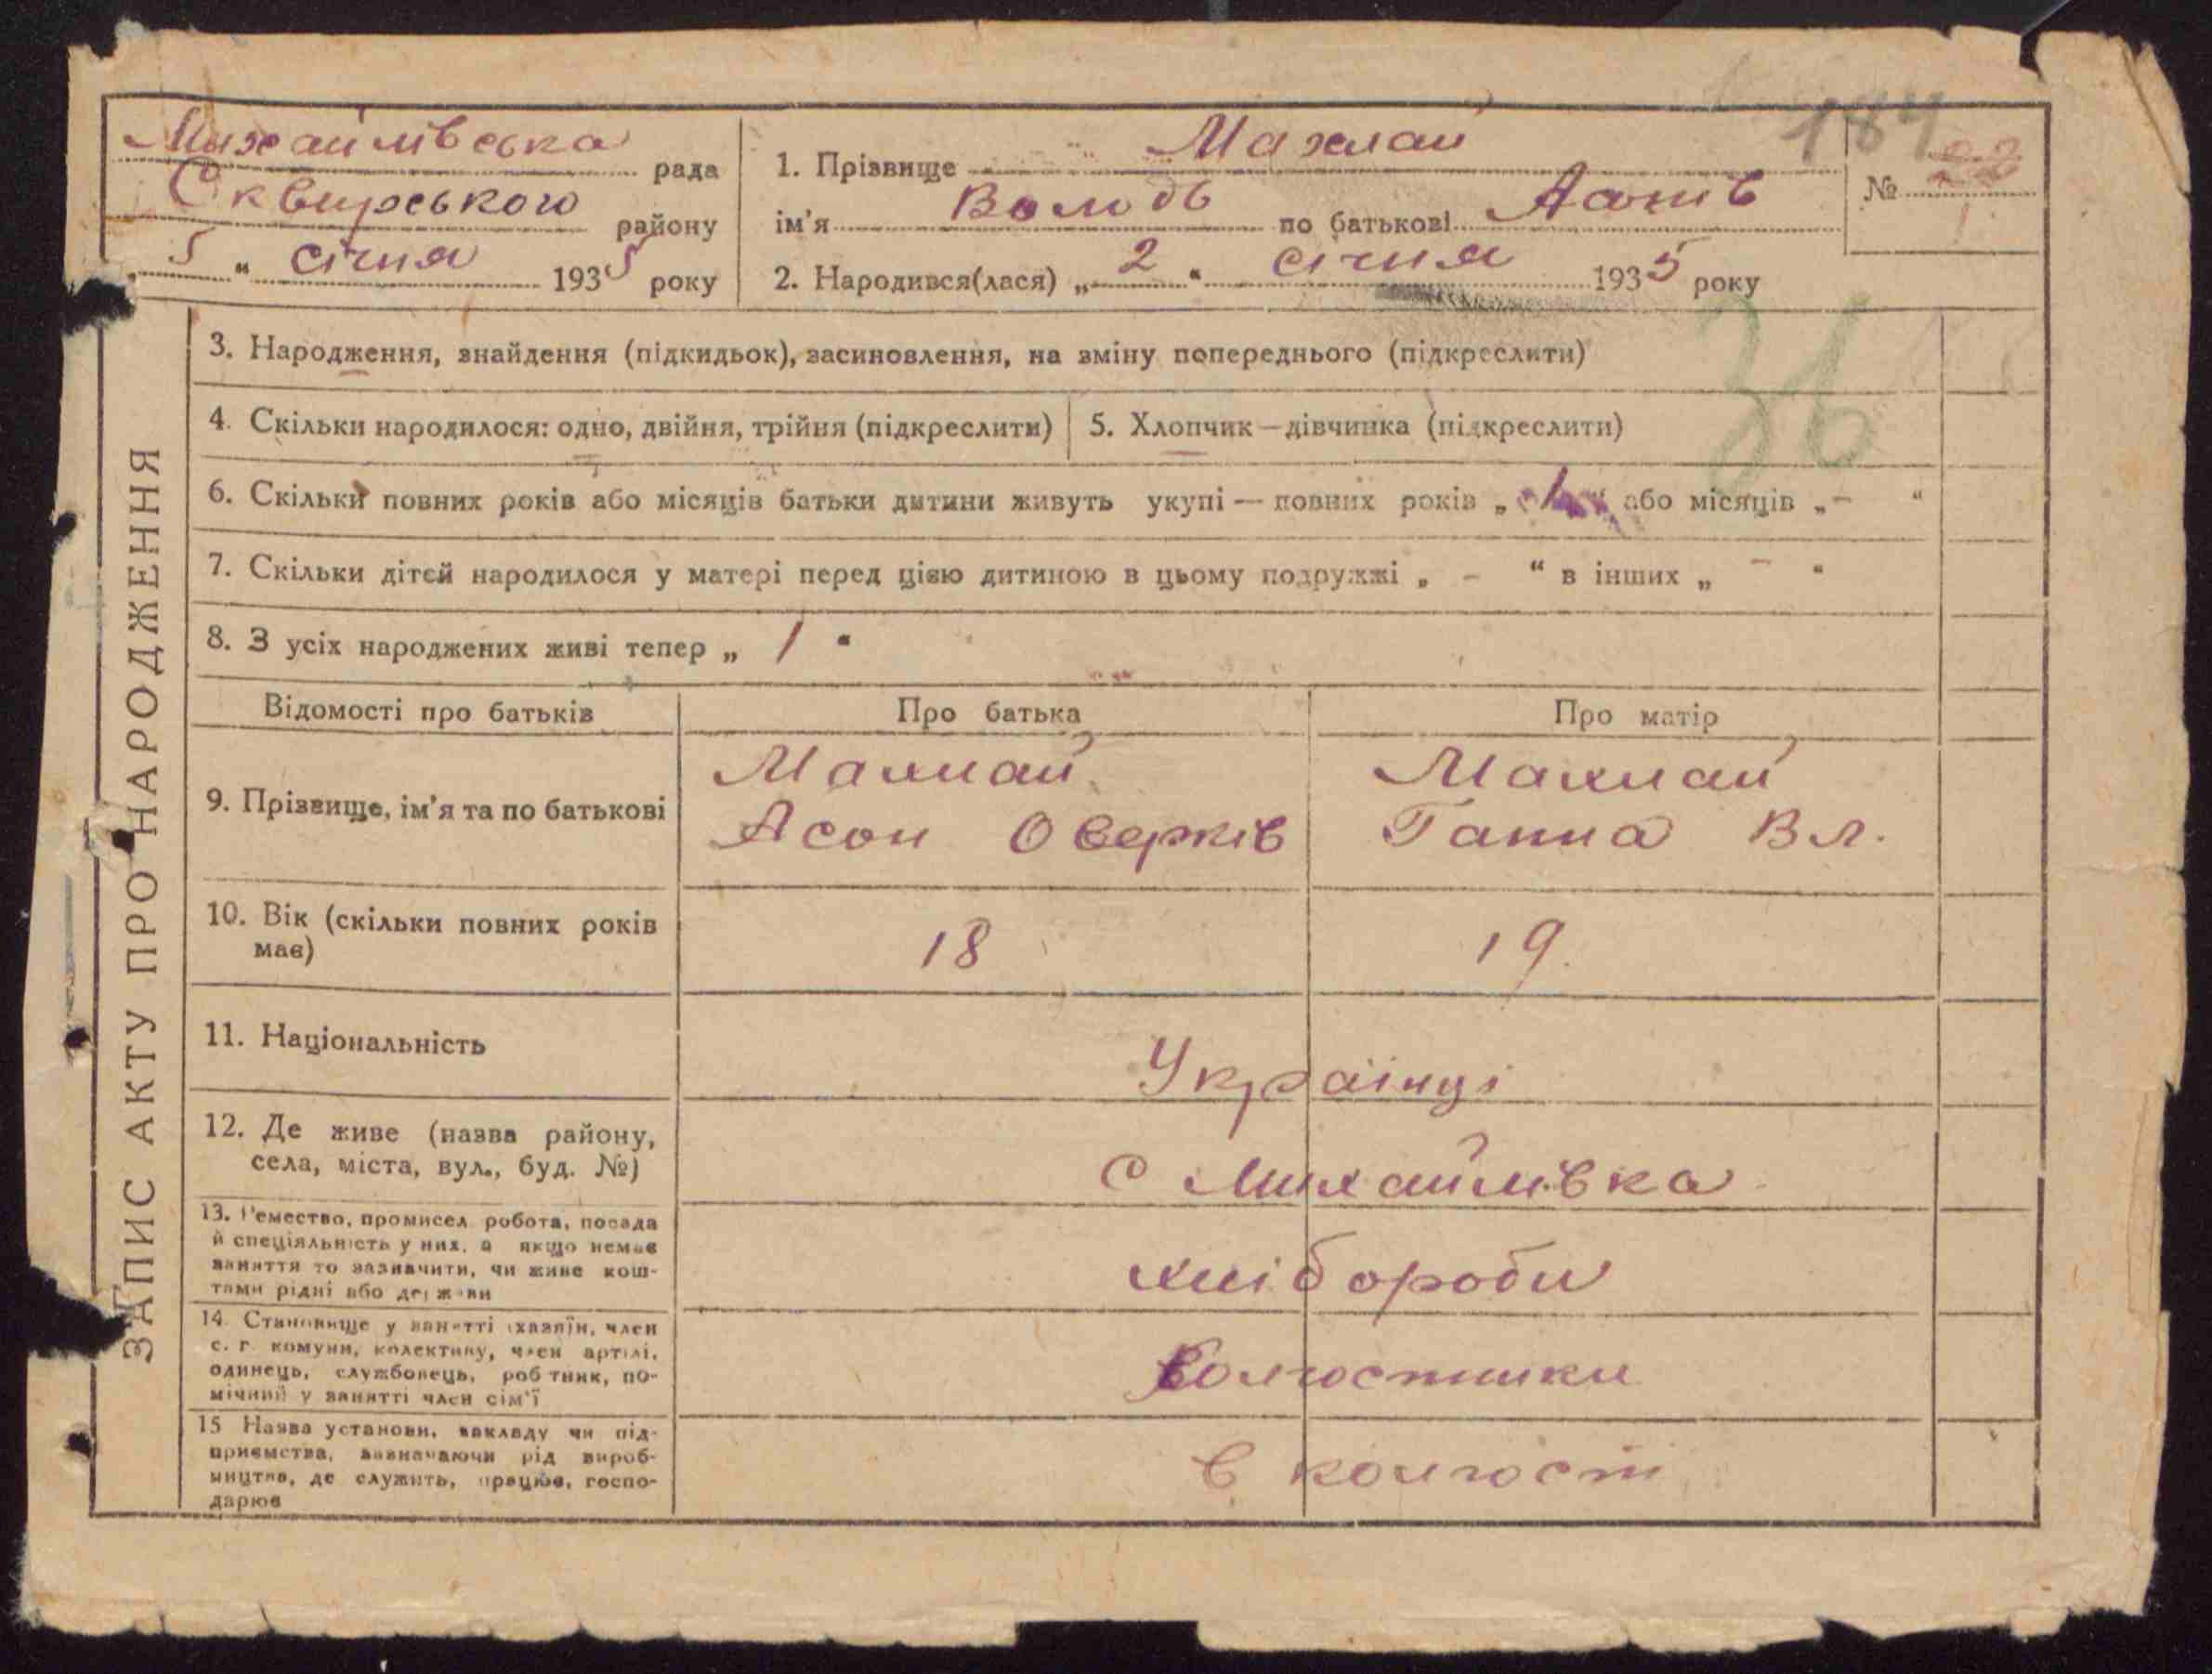 184
Михайлівська рада
Сквирського району
„ 5 “ січня 1935 року
1. Прізвище Махлай
ім’я Володь по батькові Асонів
№
1
2. Народився(лася) „ 2 “ січня 1935 року
36
ЗАПИС АКТУ ПРО НАРОДЖЕННЯ
3. Народження, знайдення (підкидьок), засиновлення, на зміну попереднього (підкреслити)
4. Скільки народилося: одно, двійня, трійня (підкреслити)
5. Хлопчик—дівчинка (підкреслити)
6. Скільки повних років або місяців батьки дитини живуть укупі — повних років „ 1 “ або місяців „ – “
7. Скільки дітей народилося у матері перед цією дитиною в цьому подружжі „ – “ в інших „ – “
8. З усіх народжених живі тепер „ 1 “
Відомості про батьків
Про батька
Про матір
9. Прізвище, ім’я та по батькові
Махлай
Асон Оверків
Махлай
Ганна Вл.
10. Вік (скільки повних років
має)
18
19.
11. Національність
Українці
12. Де живе (назва району,
села, міста, вул., буд. №)
с Михайлівка
13. Ремество, промисел робота, посада
й спеціяльність у них, а якщо немає
заняття то зазначити, чи живе кош-
тами рідні або держави
хлібороби
14. Становище у занятті (хазяїн, член
с. г. комуни, колективу, член артілі,
одинець, службовець, робітник, по-
мічний у занятті член сім’ї
Колгоспники
15 Назва установи, закладу чи під-
приємства, зазначаючи рід вироб-
ництва, де служить, працює, госпо-
дарює
в колгоспі